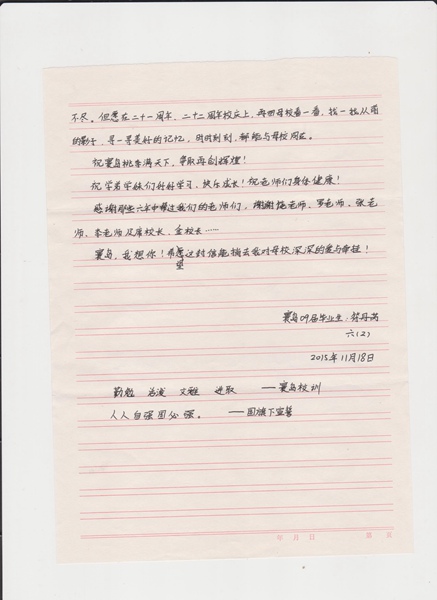 不尽。但愿在二十一周年，二十二周年校庆上，再回母校看一看，找一找从前
的影子，寻一寻美好的记忆，时时刻刻，都能与母校同在。
祝寰岛桃李满天下，争取再创辉煌！
祝学弟学妹们好好学习，快乐成长！祝老师们身体健康！
感谢那些六年中教过我们的老师们，谢谢老师，罗老师，张老
师，李老师及唐校长，金校长……
寰岛，我想你！希望这封信能捎去我对母校深深的爱与牵挂！
寰岛09届毕业生：
六(2)
2015年11月18日
勤勉 活泼 文雅 进取 ——寰岛校训
人人自强国必强。 ——国旗下宣誓
年 月 日 第 页